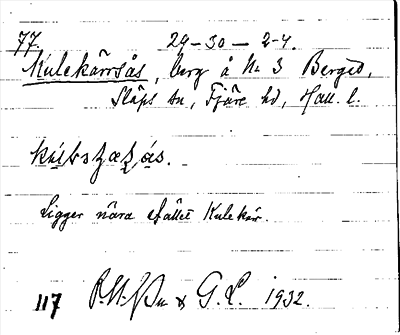 77. 29-30-2-4.
Kulekärrsås, berg å No 3 Berged,
Släps sn, Fjäre hd, Hall. l.
Ligger nära stället Kulekär.
117 & G. L. 1932.